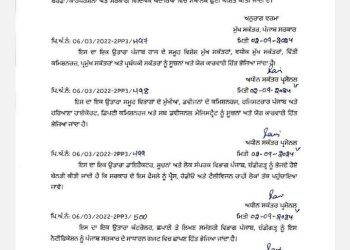 ਅਨੁਰਾਗ ਵਰਮਾ
ਮੁੱਖ ਸਕੱਤਰ, ਪੰਜਾਬ ਸਰਕਾਰ
ਪਿ.ਅੰ.ਨੰ: 06/03/2022-2PP3/497 ਮਿਤੀ 02-09-2024
ਇਸ ਦਾ ਇਕ ਉਤਾਰਾ ਪੰਜਾਬ ਰਾਜ ਦੇ ਸਮੂਹ ਵਿਸ਼ੇਸ਼ ਮੁੱਖ ਸਕੱਤਰਾਂ, ਵਧੀਕ ਮੁੱਖ ਸਕੱਤਰਾਂ, ਵਿੱਤੀ
ਕਮਿਸ਼ਨਰਾਂ, ਪ੍ਰਮੁੱਖ ਸਕੱਤਰਾਂ ਤੇ ਪ੍ਰਬੰਧਕੀ ਸਕੱਤਰਾਂ ਨੂੰ ਸੂਚਨਾ ਅਤੇ ਯੋਗ ਕਾਰਵਾਈ ਹਿੱਤ
ਭੇਜਿਆ ਜਾਂਦਾ ਹੈ।
ਅਧੀਨ ਸਕੱਤਰ ਪ੍ਰਸੋਨਲ
ਪਿ.ਅੰ.ਨੰ: 06/03/2022-2PP3/498 ਮਿਤੀ 02-09-2024
ਇਸ ਦਾ ਇਕ ਉਤਾਰਾ ਸਮੂਹ ਵਿਭਾਗਾਂ ਦੇ ਮੁੱਖੀਆਂ, ਡਵੀਜ਼ਨਾਂ ਦੇ ਕਮਿਸ਼ਨਰਜ਼, ਰਜਿਸਟਰਾਰ ਪੰਜਾਬ ਅਤੇ
ਹਰਿਆਣਾ ਹਾਈਕੋਰਟ, ਡਿਪਟੀ ਕਮਿਸ਼ਨਰਜ਼ ਅਤੇ ਸਬ ਡਵੀਜ਼ਨਲ ਮੈਜਿਸਟ੍ਰੇਟ ਨੂੰ ਸੂਚਨਾ ਅਤੇ ਯੋਗ ਕਾਰਵਾਈ ਹਿੱਤ
ਭੇਜਿਆ ਜਾਂਦਾ ਹੈ।
ਅਧੀਨ ਸਕੱਤਰ ਪ੍ਰਸੋਨਲ
ਪਿ.ਅੰ.ਨੰ: 06/03/2022-2PP3/499 ਮਿਤੀ 02-09-2024
ਇਸ ਦਾ ਇਕ ਉਤਾਰਾ ਡਾਇਰੈਕਟਰ, ਸੂਚਨਾ ਅਤੇ ਲੋਕ ਸੰਪਰਕ ਵਿਭਾਗ ਪੰਜਾਬ, ਚੰਡੀਗੜ੍ਹ ਨੂੰ ਭੇਜਦੇ ਹੋਏ
ਬੇਨਤੀ ਕੀਤੀ ਜਾਂਦੀ ਹੈ ਕਿ ਸਰਕਾਰ ਦੇ ਇਸ ਫੈਸਲੇ ਨੂੰ ਪ੍ਰੈਸ, ਰੇਡੀਓ ਅਤੇ ਟੈਲੀਵਿਜ਼ਨ ਰਾਹੀਂ ਲੋਕਾਂ ਤੱਕ ਪਹੁੰਚਾਇਆ
ਜਾਵੇ।
ਅਧੀਨ ਸਕੱਤਰ ਪ੍ਰਸੋਨਲ
ਪਿ.ਅੰ.ਨੰ: 06/03/2022-2PP3/500 ਮਿਤੀ 02-09-2024
ਇਸ ਦਾ ਇਕ ਉਤਾਰਾ ਕੰਟਰੋਲਰ, ਛਪਾਈ ਤੇ ਲਿਖਣ ਸਮੱਗਰੀ ਵਿਭਾਗ ਪੰਜਾਬ, ਚੰਡੀਗੜ੍ਹ ਨੂੰ ਇਸ
ਨੋਟੀਫਿਕੇਸ਼ਨ ਨੂੰ ਪੰਜਾਬ ਸਰਕਾਰ ਦੇ ਸਾਧਾਰਨ ਗਜ਼ਟ ਵਿਚ ਛਾਪਣ ਹਿੱਤ ਭੇਜਿਆ ਜਾਂਦਾ ਹੈ।